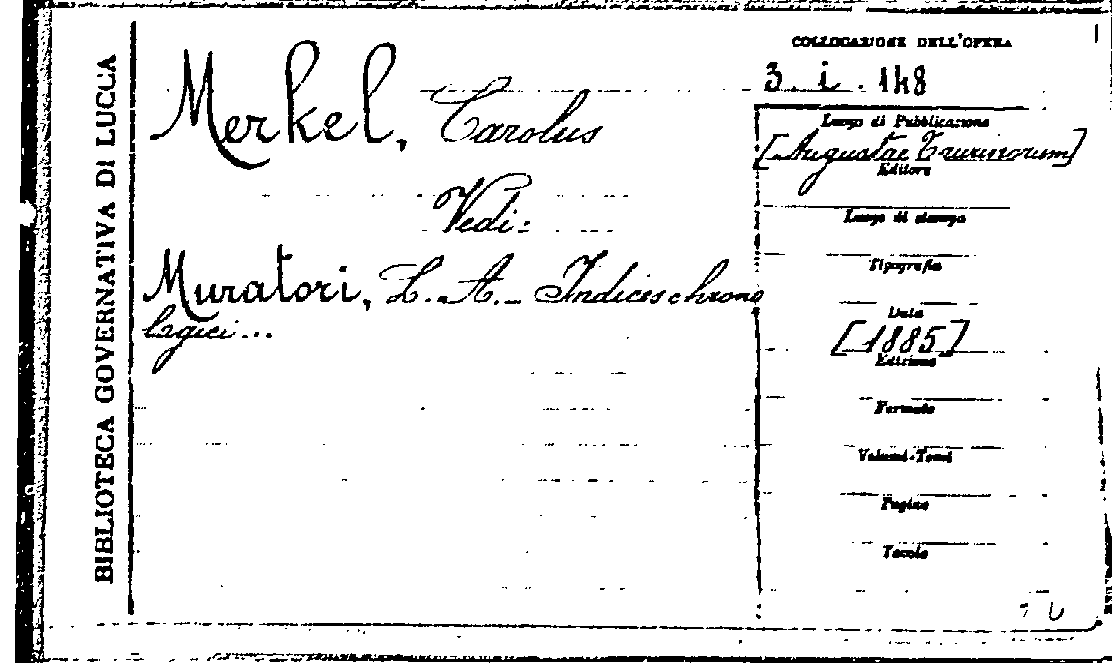 BIBLIOTECA GOVERNATIVA DI LUCCA
Merkel, Carolus
Vedi:
Muratori, L. A. - Indices chrono
logici...
COLLOCAZIONE DELL'OPERA
3. i. 148
Luogo di Pubblicazione
[Augustae Taurinorum]
Editore
Luogo di stampa
Tipografia
Data
[1885]
Edizione
Formato
Volumi-Tomi
Pagine
Tavole